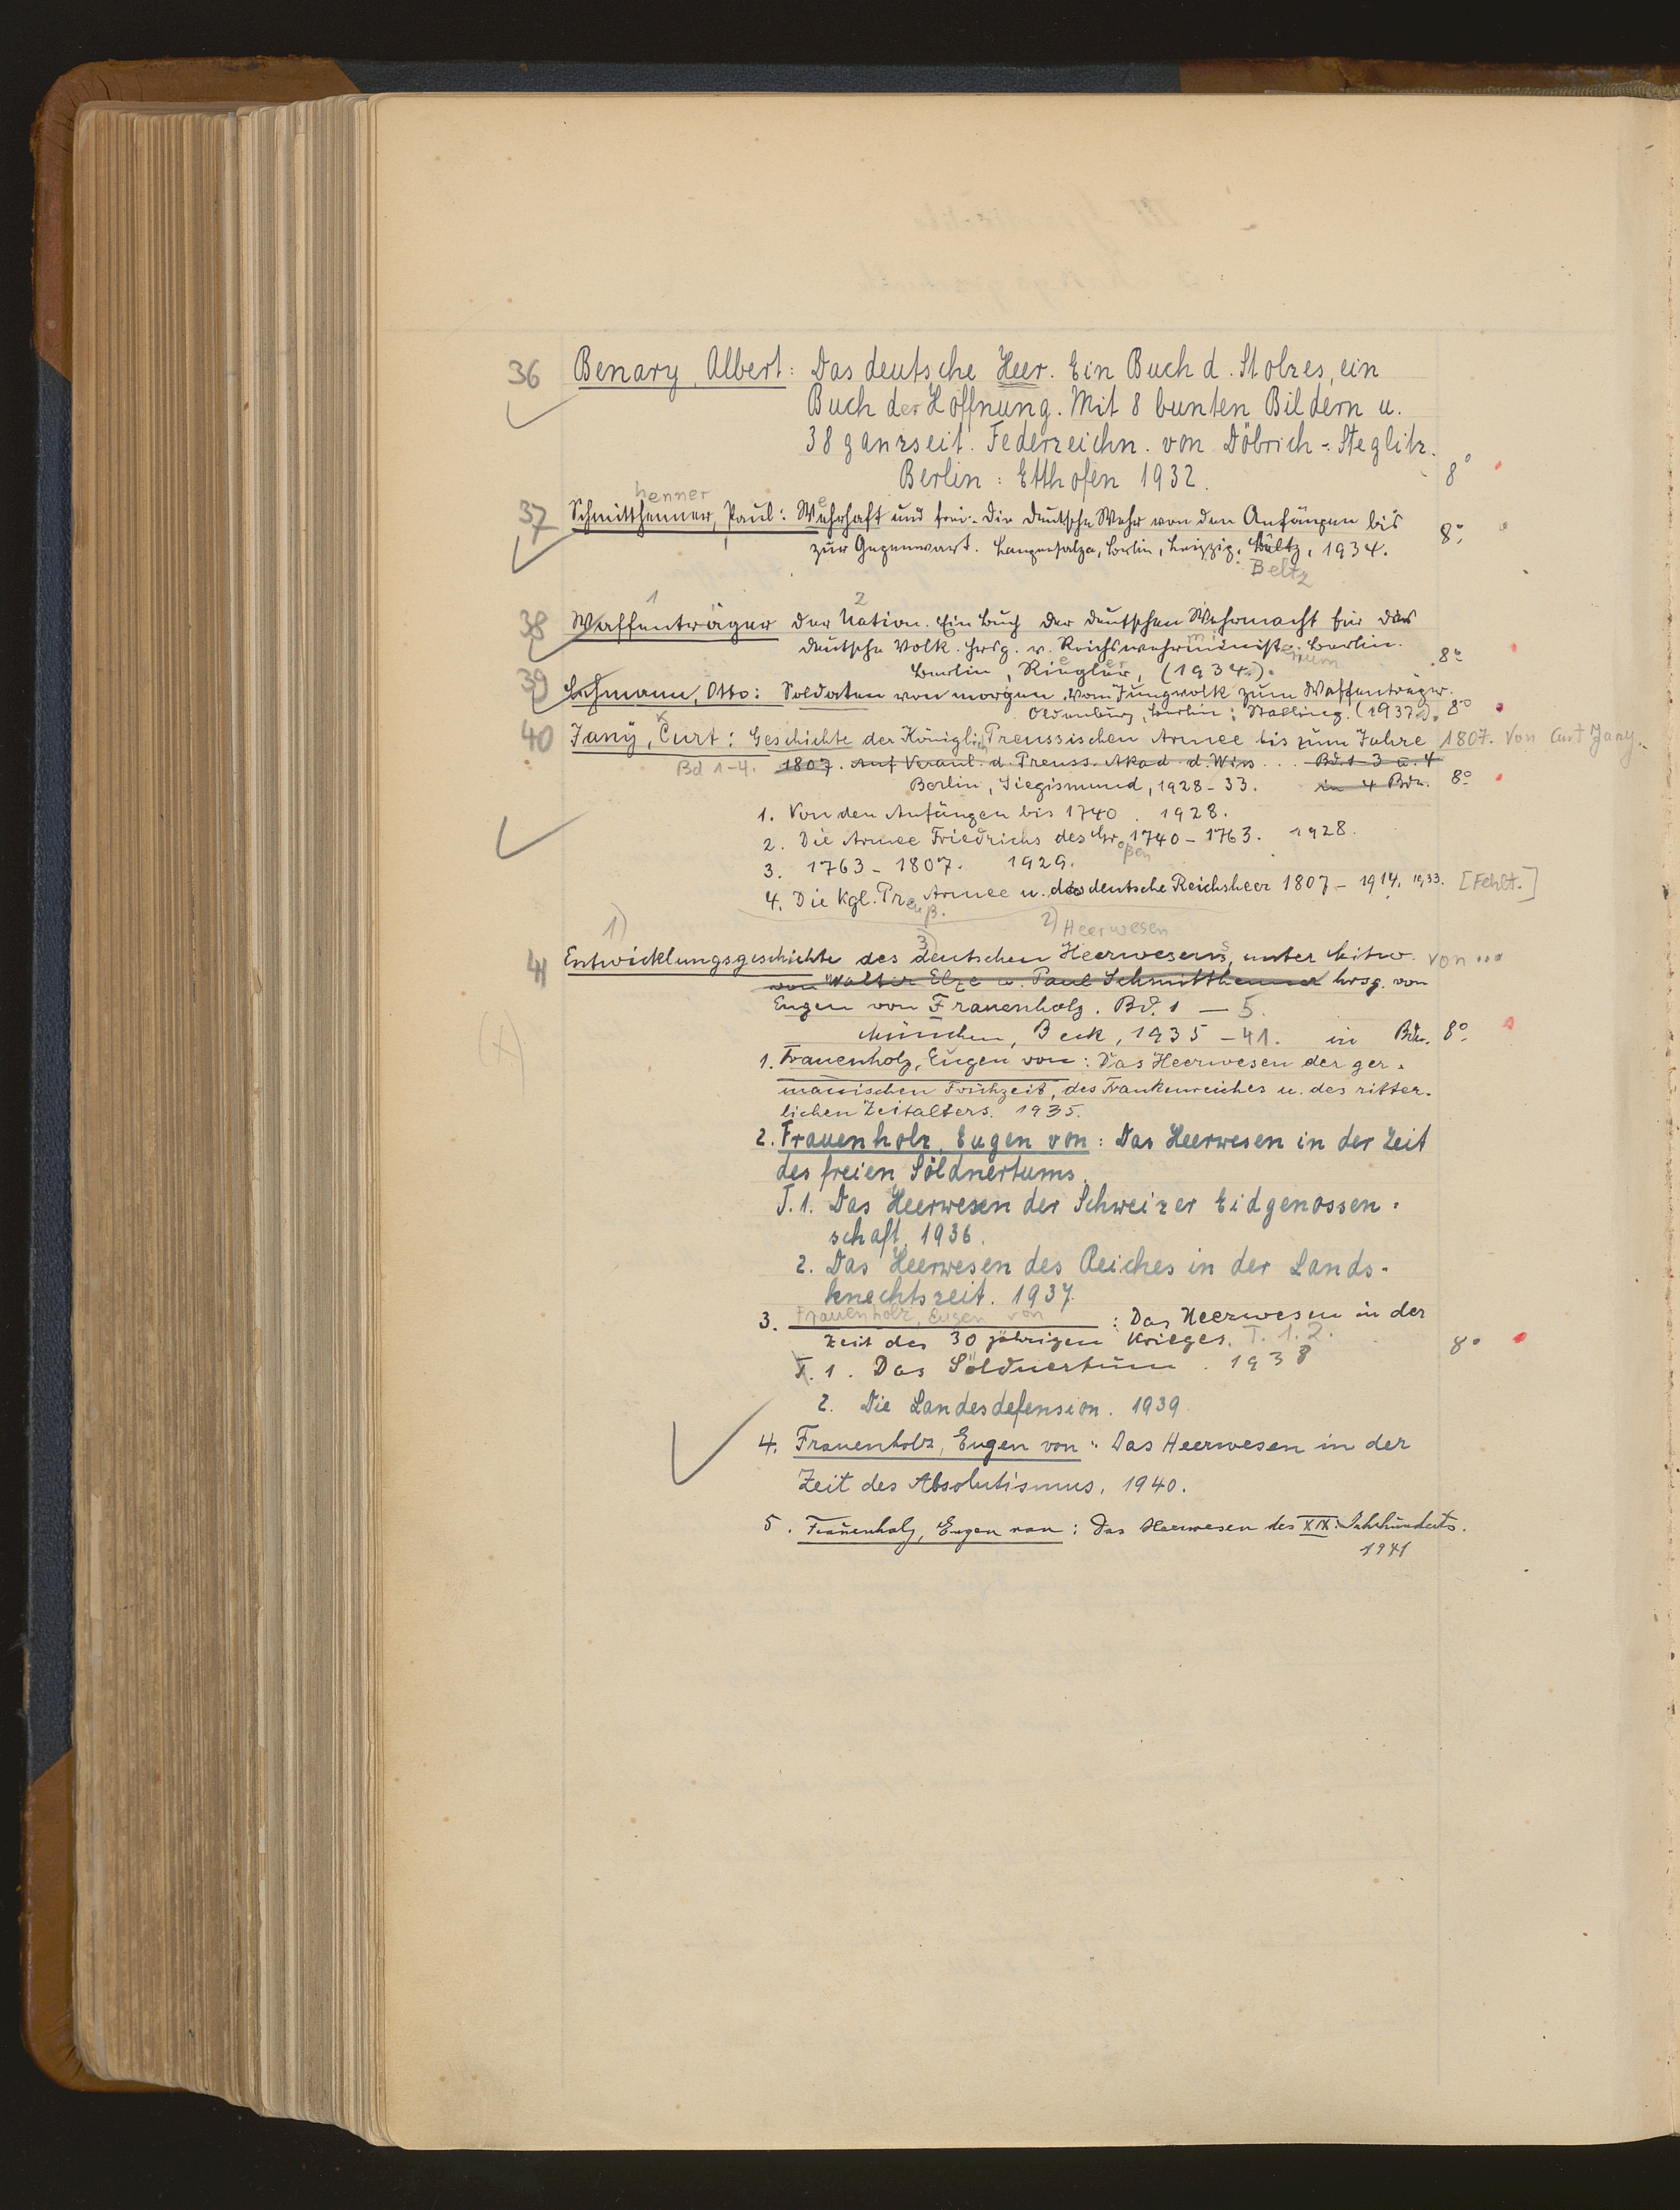 36 Benary, Albert: Das deutsche Heer. Ein Buch d. Stolzes, ein
Buch der Hoffnung. Mit 8 bunten Bildern u.
38 ganzseit. Federzeichn. von Döbrich-Steglitz.
Berlin: Etthofen 1932. 8°
henner
37 Schmitthenner, Paul: Wehrhaft und frei. Die deutsche Wehr von den Anfängen bis
zur Gegenwart. Langensalza, Berlin, Leipzig, Beltz, 1934. 8°
Beltz
1 2
38 Waffenträger der Nation. Ein Buch der deutschen Wehrmacht für das
deutsche Volk. Hrsg. v. Reichswehrminist. Berlin.
erium
Berlin, Riegler, (1934). 8°
39 Lehmann, Otto: Soldaten von morgen. Vom Jungvolk zum Waffenträger.
Oldenburg, Berlin: Stalling. (1937). 8°
40 Jany, Curt: Geschichte der Königlich Preussischen Armee bis zum Jahre 1807. Von Curt Jany.
Bd 1-4. 1807. Auf Veranl. d. Preuss. Akad. d. Wiss... Bd. 1-3 u. 4
Berlin, Siegismund, 1928-33. in 4 Bdn. 8°
1. Von den Anfängen bis 1740. 1928.
2. Die Armee Friedrichs des Großen 1740-1763. 1928.
3. 1763-1807. 1929.
4. Die Kgl. Preuß. Armee u. das deutsche Reichsheer 1807-1914. 1933. [Fehlt.]
1) 3) 2) Heerwesen
41 Entwicklungsgeschichte des deutschen Heerwesens, unter Mitw. von ...
von Walter Elze u. Paul Schmitthenner hrsg. von
Eugen von Frauenholz. Bd. 1 — 5.
München, Beck, 1935-41. in Bdn. 8°
(X)
1. Frauenholz, Eugen von: Das Heerwesen der ger-
manischen Frühzeit, des Frankenreiches u. des ritter-
lichen Zeitalters. 1935.
2. Frauenholz, Eugen von: Das Heerwesen in der Zeit
des freien Söldnertums.
T. 1. Das Heerwesen der Schweizer Eidgenossen-
schaft. 1936.
2. Das Heerwesen des Reiches in der Lands-
knechtszeit. 1937.
3. Frauenholz, Eugen von: Das Heerwesen in der
Zeit des 30 jährigen Krieges. T. 1. 2. 8°
T. 1. Das Söldnertum. 1938
2. Die Landesdefension. 1939
4. Frauenholz, Eugen von: Das Heerwesen in der
Zeit des Absolutismus, 1940.
5. Frauenholz, Eugen von: Das Heerwesen des XIX. Jahrhunderts.
1941